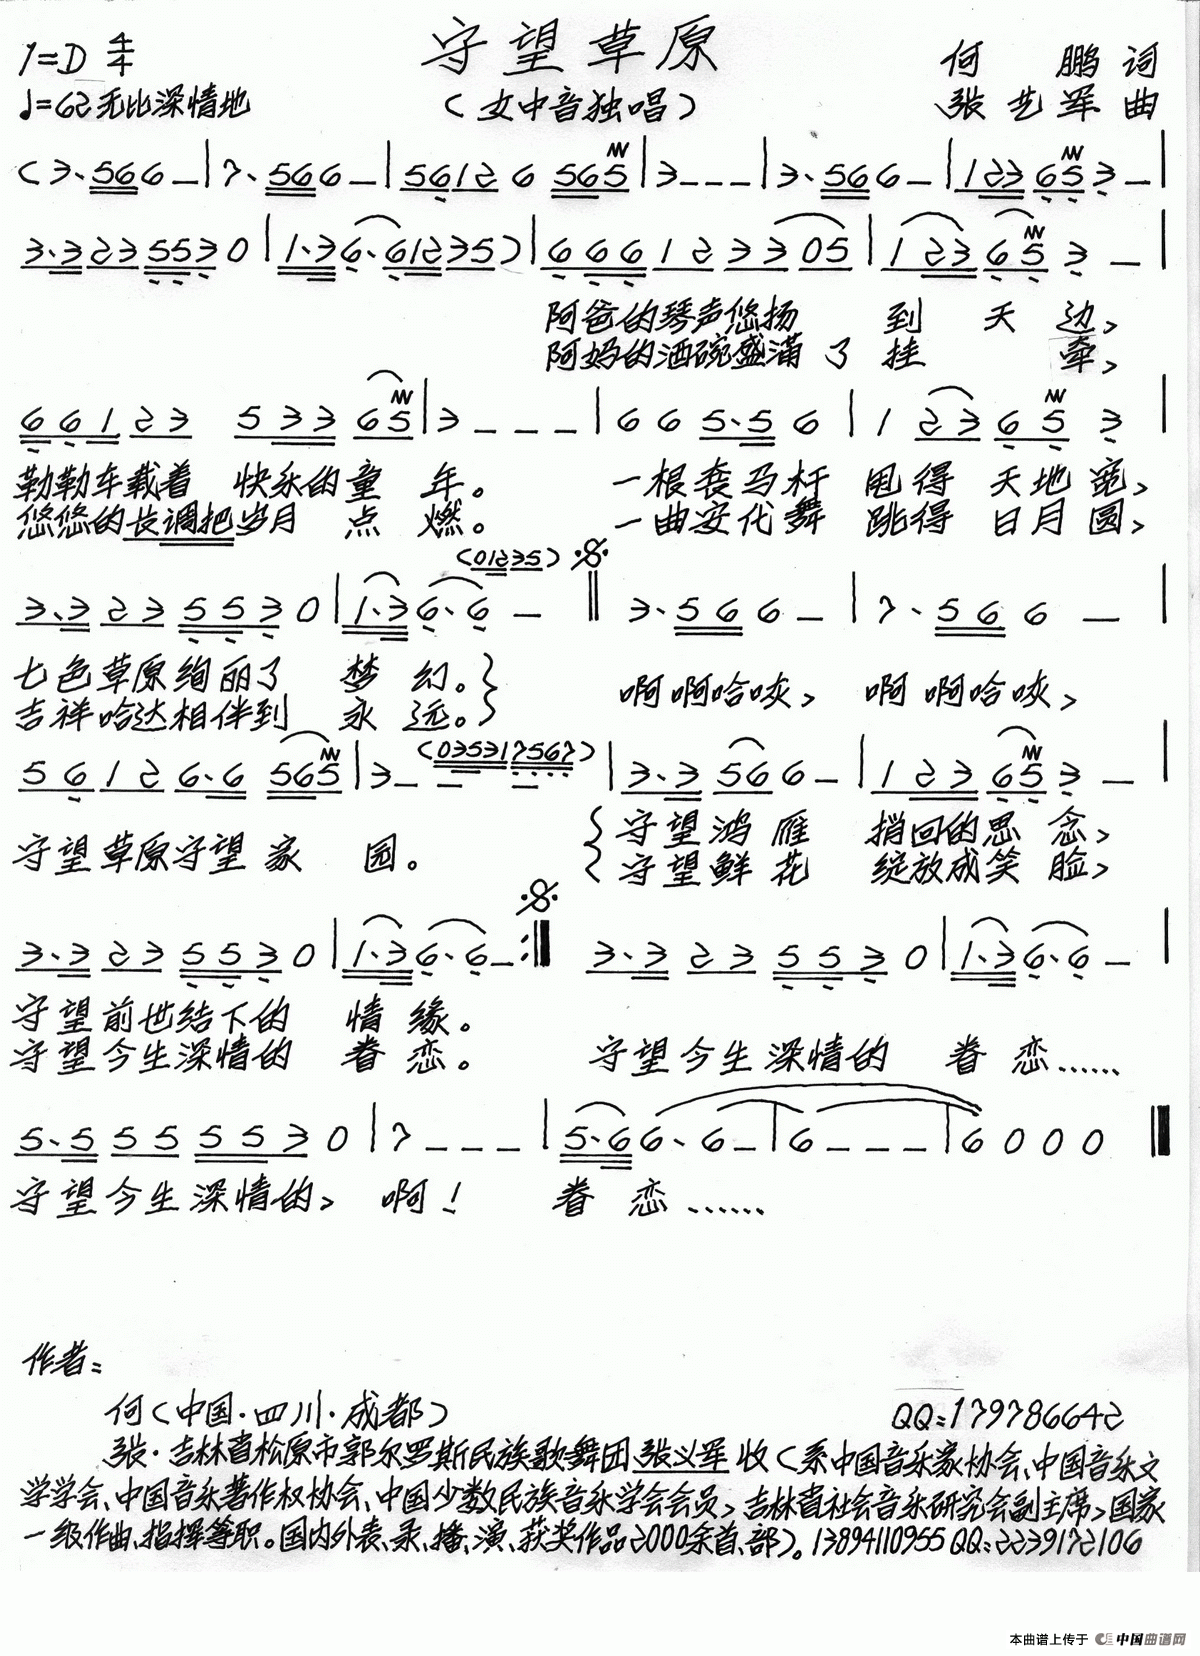 守望草原
1=D 4/4
何 鹏 词
♩=62 无比深情地
（女中音独唱）
张艺军 曲
(3·566－|7·566－|561265 65|3－－－|3·566－|123653－|
3·3235530|1·36·61235)|66612 3305|123653－|
阿爸的琴声悠扬 到 天 边，
阿妈的酒碗盛满了 挂 牵，
66123 53365|3－－－|665·56|123653|
勒勒车载着 快乐的童 年。 一根套马杆 甩得 天地宽，
悠悠的长调把岁月 点 燃。 一曲安代舞 跳得 日月圆，
(01235)
3·3235530|1·36·6－‖3·566－|7·566－|
七色草原绚丽了 梦 幻。 啊啊哈咴， 啊啊哈咴，
吉祥哈达相伴到 永 远。
(035317567)
56126·6565|3－－－|3·35666－|123653－|
守望草原守望家 园。 守望鸿雁 捎回的思 念，
守望鲜花 绽放成笑 脸，
3·3235530|1·36·6－:‖3·3235530|1·36·6－|
守望前世结下的 情 缘。
守望今生深情的 眷 恋。 守望今生深情的 眷 恋……
5·5555530|7－－－|5·66·6－|6－－－|6000‖
守望今生深情的， 啊！ 眷 恋……
作者：
何（中国·四川·成都） QQ：179786642
张·吉林省松原市郭尔罗斯民族歌舞团 张义军 收（系中国音乐家协会、中国音乐文
学学会、中国音乐著作权协会、中国少数民族音乐学会会员，吉林省社会音乐研究会副主席，国家
一级作曲、指挥等职。国内外表、录、播、演、获奖作品2000余首、部）。13894110955 QQ：2239172106
本曲谱上传于 中国曲谱网